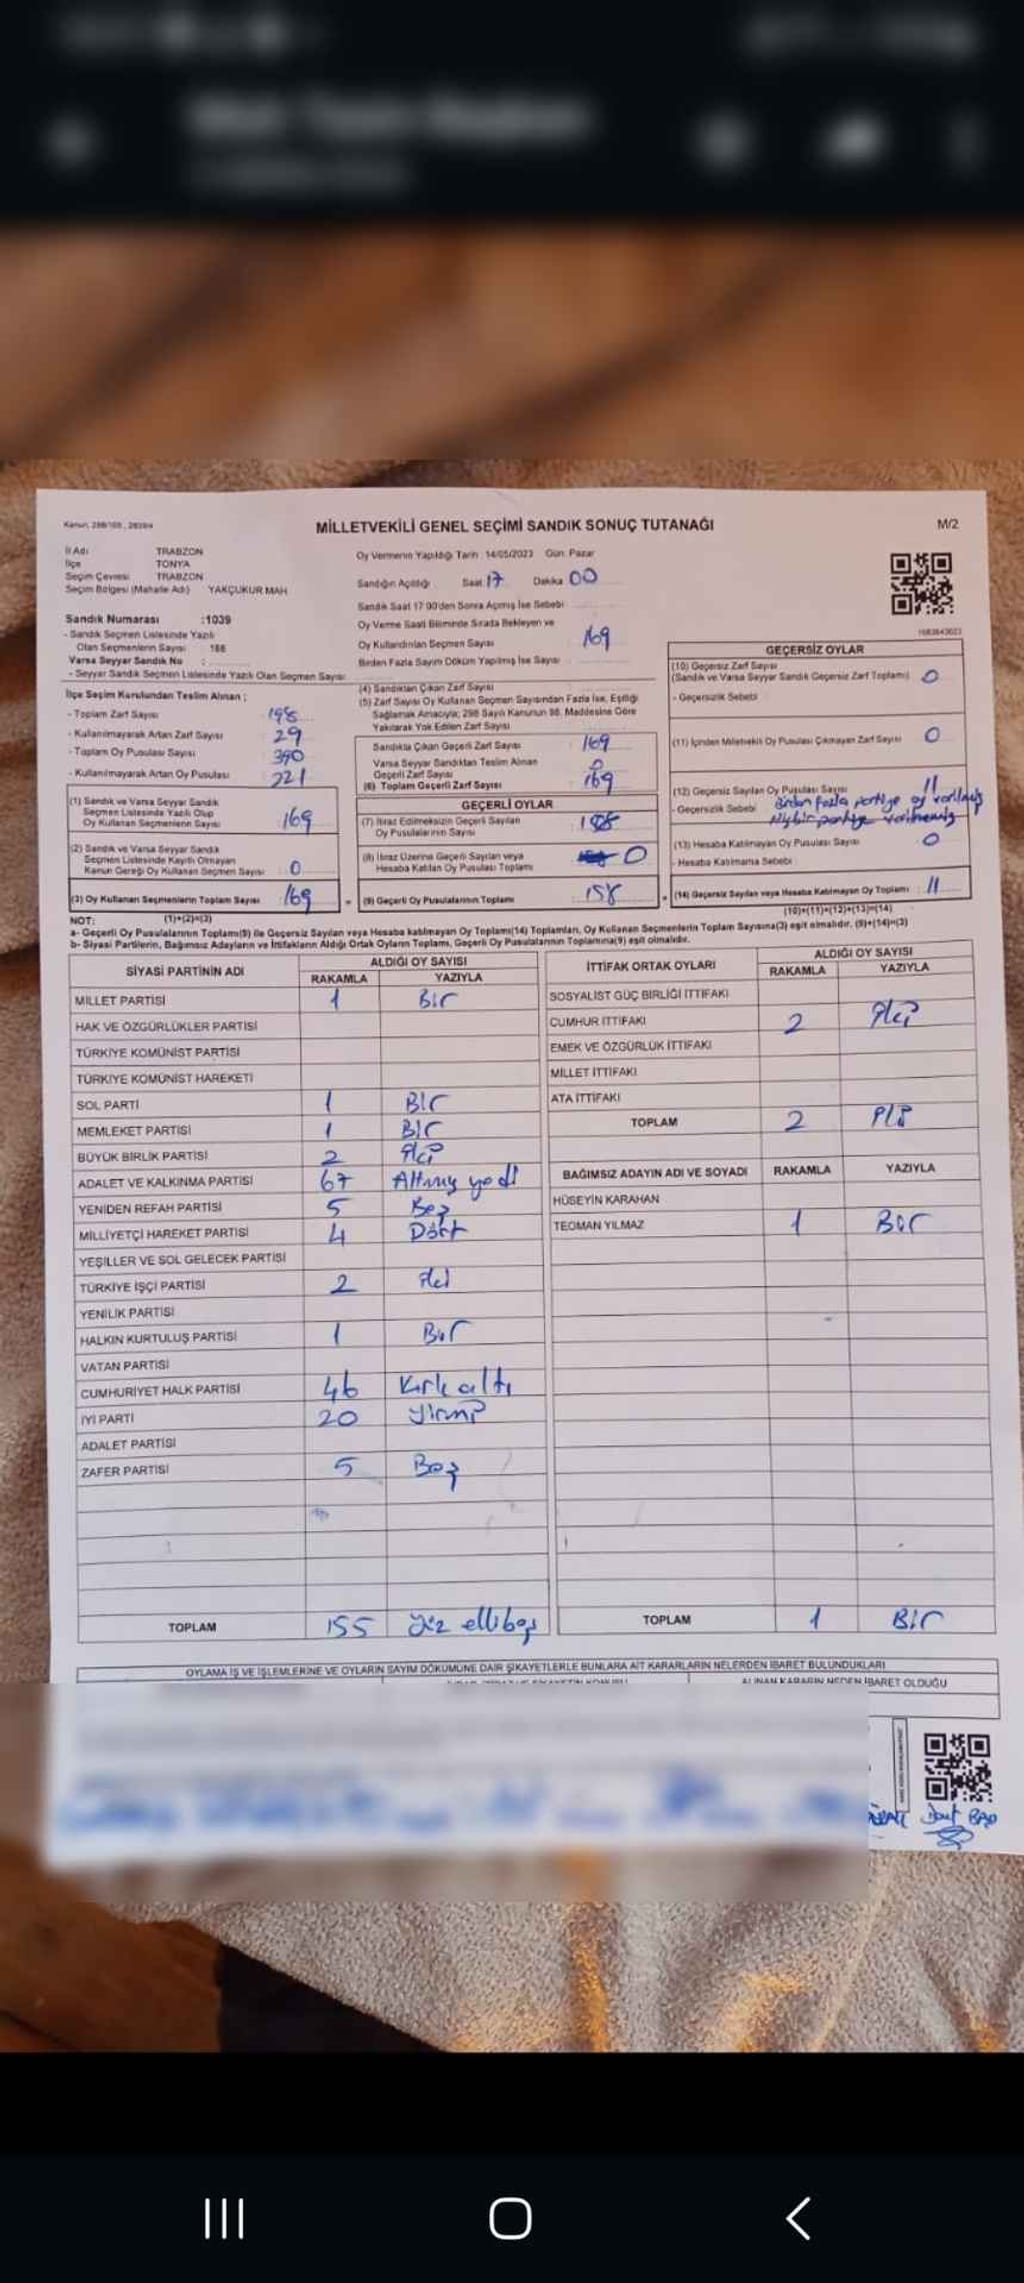 Kanun, 298/105, 2839/4
MİLLETVEKİLİ GENEL SEÇİMİ SANDIK SONUÇ TUTANAĞI
M/2
İl Adı TRABZON
İlçe TONYA
Seçim Çevresi TRABZON
Seçim Bölgesi (Mahalle Adı) YAKÇUKUR MAH.
Oy Vermenin Yapıldığı Tarih : 14/05/2023 Gün: Pazar
Sandığın Açıldığı Saat 17 Dakika 00
Sandık Saat 17 00'den Sonra Açmış İse Sebebi
Oy Verme Saati Bitiminde Sırada Bekleyen ve
Oy Kullandırılan Seçmen Sayısı 169
Birden Fazla Sayım Döküm Yapılmış İse Sayısı
Sandık Numarası :1039
- Sandık Seçmen Listesinde Yazılı
Olan Seçmenlerin Sayısı : 188
Varsa Seyyar Sandık No :
- Seyyar Sandık Seçmen Listesinde Yazılı Olan Seçmen Sayısı
İlçe Seçim Kurulundan Teslim Alınan ;
- Toplam Zarf Sayısı 198
- Kullanılmayarak Artan Zarf Sayısı 29
- Toplam Oy Pusulası Sayısı 390
- Kullanılmayarak Artan Oy Pusulası 221
(1) Sandık ve Varsa Seyyar Sandık
Seçmen Listesinde Yazılı Olup
Oy Kullanan Seçmenlerin Sayısı 169
(2) Sandık ve Varsa Seyyar Sandık
Seçmen Listesinde Kayıtlı Olmayan
Kanun Gereği Oy Kullanan Seçmen Sayısı : 0
(3) Oy Kullanan Seçmenlerin Toplam Sayısı 169
(1)+(2)=(3)
(4) Sandıktan Çıkan Zarf Sayısı
(5) Zarf Sayısı Oy Kullanan Seçmen Sayısından Fazla İse, Eşitliği
Sağlamak Amacıyla; 298 Sayılı Kanunun 98. Maddesine Göre
Yakılarak Yok Edilen Zarf Sayısı
Sandıkta Çıkan Geçerli Zarf Sayısı 169
Varsa Seyyar Sandıktan Teslim Alınan
Geçerli Zarf Sayısı 0
(6) Toplam Geçerli Zarf Sayısı 169
GEÇERLİ OYLAR
(7) İtiraz Edilmeksizin Geçerli Sayılan
Oy Pusulalarının Sayısı : 158
(8) İtiraz Üzerine Geçerli Sayılan veya
Hesaba Katılan Oy Pusulası Toplamı 0
(9) Geçerli Oy Pusulalarının Toplamı 158
GEÇERSİZ OYLAR
(10) Geçersiz Zarf Sayısı
(Sandık ve Varsa Seyyar Sandık Geçersiz Zarf Toplamı) 0
- Geçersizlik Sebebi
(11) İçinden Milletvekili Oy Pusulası Çıkmayan Zarf Sayısı 0
(12) Geçersiz Sayılan Oy Pusulası Sayısı 11
- Geçersizlik Sebebi Birden fazla partiye oy verilmiş
Hiçbir partiye verilmemiş
(13) Hesaba Katılmayan Oy Pusulası Sayısı 0
- Hesaba Katılmama Sebebi :
(14) Geçersiz Sayılan veya Hesaba Katılmayan Oy Toplamı : 11
(10)+(11)+(12)+(13)=(14)
NOT:
a- Geçerli Oy Pusulalarının Toplamı(9) ile Geçersiz Sayılan veya Hesaba katılmayan Oy Toplamı(14) Toplamları, Oy Kullanan Seçmenlerin Toplam Sayısına(3) eşit olmalıdır. (9)+(14)=(3)
b- Siyasi Partilerin, Bağımsız Adayların ve İttifakların Aldığı Ortak Oyların Toplamı, Geçerli Oy Pusulalarının Toplamına(9) eşit olmalıdır.
SİYASİ PARTİNİN ADI
ALDIĞI OY SAYISI
RAKAMLA YAZIYLA
MİLLET PARTİSİ 1 Bir
HAK VE ÖZGÜRLÜKLER PARTİSİ
TÜRKİYE KOMÜNİST PARTİSİ
TÜRKİYE KOMÜNİST HAREKETİ
SOL PARTİ 1 Bir
MEMLEKET PARTİSİ 1 Bir
BÜYÜK BİRLİK PARTİSİ 2 İki
ADALET VE KALKINMA PARTİSİ 67 Altmış yedi
YENİDEN REFAH PARTİSİ 5 Beş
MİLLİYETÇİ HAREKET PARTİSİ 4 Dört
YEŞİLLER VE SOL GELECEK PARTİSİ
TÜRKİYE İŞÇİ PARTİSİ 2 iki
YENİLİK PARTİSİ
HALKIN KURTULUŞ PARTİSİ 1 Bir
VATAN PARTİSİ
CUMHURİYET HALK PARTİSİ 46 Kırk altı
İYİ PARTİ 20 Yirmi
ADALET PARTİSİ
ZAFER PARTİSİ 5 Beş
TOPLAM 155 Yüz ellibeş
İTTİFAK ORTAK OYLARI
ALDIĞI OY SAYISI
RAKAMLA YAZIYLA
SOSYALİST GÜÇ BİRLİĞİ İTTİFAKI
CUMHUR İTTİFAKI 2 İki
EMEK VE ÖZGÜRLÜK İTTİFAKI
MİLLET İTTİFAKI
ATA İTTİFAKI
TOPLAM 2 İki
BAĞIMSIZ ADAYIN ADI VE SOYADI RAKAMLA YAZIYLA
HÜSEYİN KARAHAN
TEOMAN YILMAZ 1 Bir
TOPLAM 1 Bir
OYLAMA İŞ VE İŞLEMLERİNE VE OYLARIN SAYIM DÖKÜMÜNE DAİR ŞİKAYETLERLE BUNLARA AİT KARARLARIN NELERDEN İBARET BULUNDUKLARI
ALINAN KARARIN NEDEN İBARET OLDUĞU